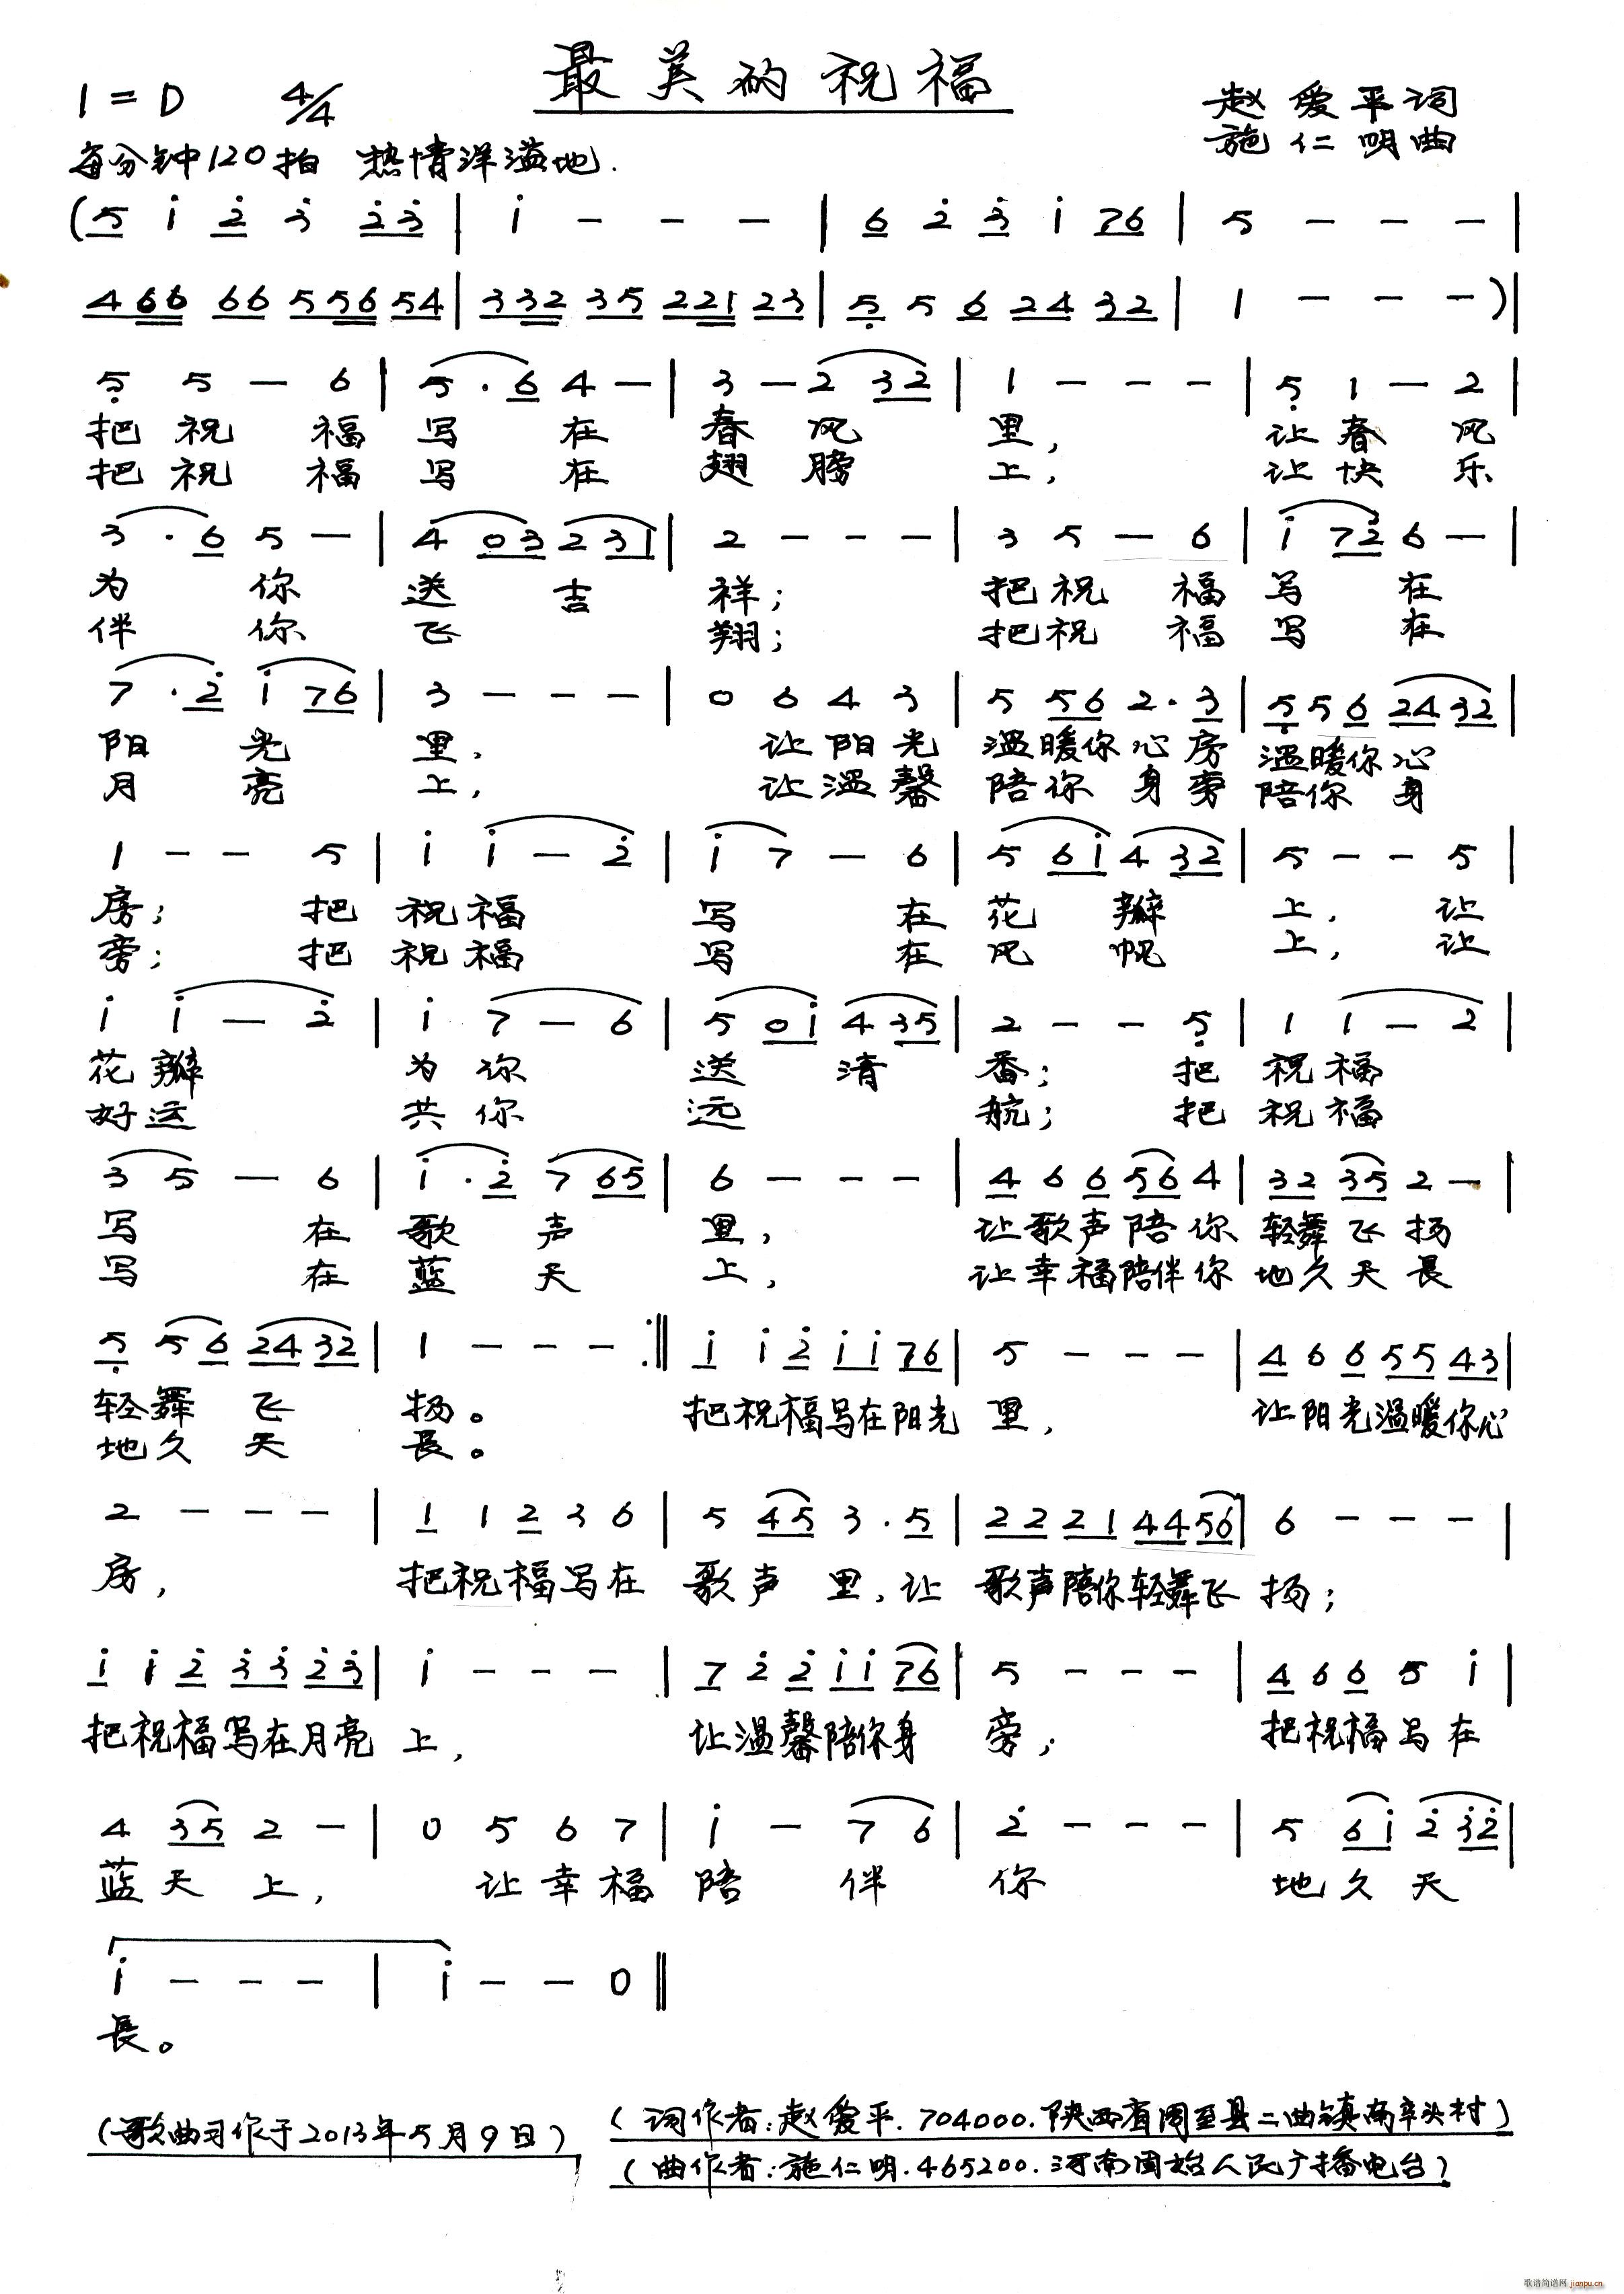 最美的祝福
1=D 4/4
赵爱平词
施仁明曲
每分钟120拍 热情洋溢地.
(5 i 2̇ 3̇ 2̇3̇ | i - - - | 6 2̇ 3̇ i 76 | 5 - - - |
466 66 556 54 | 332 35 221 23 | 5̣ 5 6 24 32 | 1 - - -)|
5̣ 5 - 6 | 5·6 4 - | 3 - 2 32 | 1 - - - | 5̣ 1 - 2 |
把祝福写在春风里,让春风
把祝福写在翅膀上,让快乐
3·6 5 - | 4 03 2 31 | 2 - - - | 3 5 - 6 | i 72̇ 6 - |
为你送吉祥;把祝福写在
伴你飞翔;把祝福写在
7·2̇ i 76 | 3 - - - | 0 6 4 3 | 5 56 2·3 | 5̣ 5 6 24 32 |
阳光里,让阳光温暖你心房温暖你心
月亮上,让温馨陪你身旁陪你身
1 - - 5 | i i - 2̇ | i 7 - 6 | 5 6i 4 32 | 5 - - 5 |
房;把祝福写在花瓣上,让
旁;把祝福写在风帆上,让
i i - 2̇ | i 7 - 6 | 5 0i 4 35 | 2 - - 5̣ | 1 1 - 2 |
花瓣为你送清香;把祝福
好运共你远航;把祝福
3 5 - 6 | i·2̇ 7 65 | 6 - - - | 4 6 6 56 4 | 32 35 2 - |
写在歌声里,让歌声陪你轻舞飞扬
写在蓝天上,让幸福陪伴你地久天長
5̣ 5 6 24 32 | 1 - - - :‖ i i 2̇ i i 76 | 5 - - - | 4 6 6 55 43 |
轻舞飞扬。把祝福写在阳光里,让阳光温暖你心
地久天長。
2 - - - | 1 1 2 3 6 | 5 45 3·5 | 22 21 44 56 | 6 - - - |
房,把祝福写在歌声里,让歌声陪你轻舞飞扬;
i i 2̇ 3̇3̇ 2̇3̇ | i - - - | 7 2̇ 2̇ i i 76 | 5 - - - | 4 6 6 5 i |
把祝福写在月亮上,让温馨陪你身旁,把祝福写在
4 35 2 - | 0 5 6 7 | i - 7 6 | 2̇ - - - | 5 6i 2̇ 3̇2̇ |
蓝天上,让幸福陪伴你地久天
i - - - | i - - 0 ‖
長。
(歌曲习作于2013年5月9日)
(词作者:赵爱平.704000.陕西省周至县二曲镇南辛头村)
(曲作者:施仁明.465200.河南固始人民广播电台)
歌谱简谱网 jianpu.cn